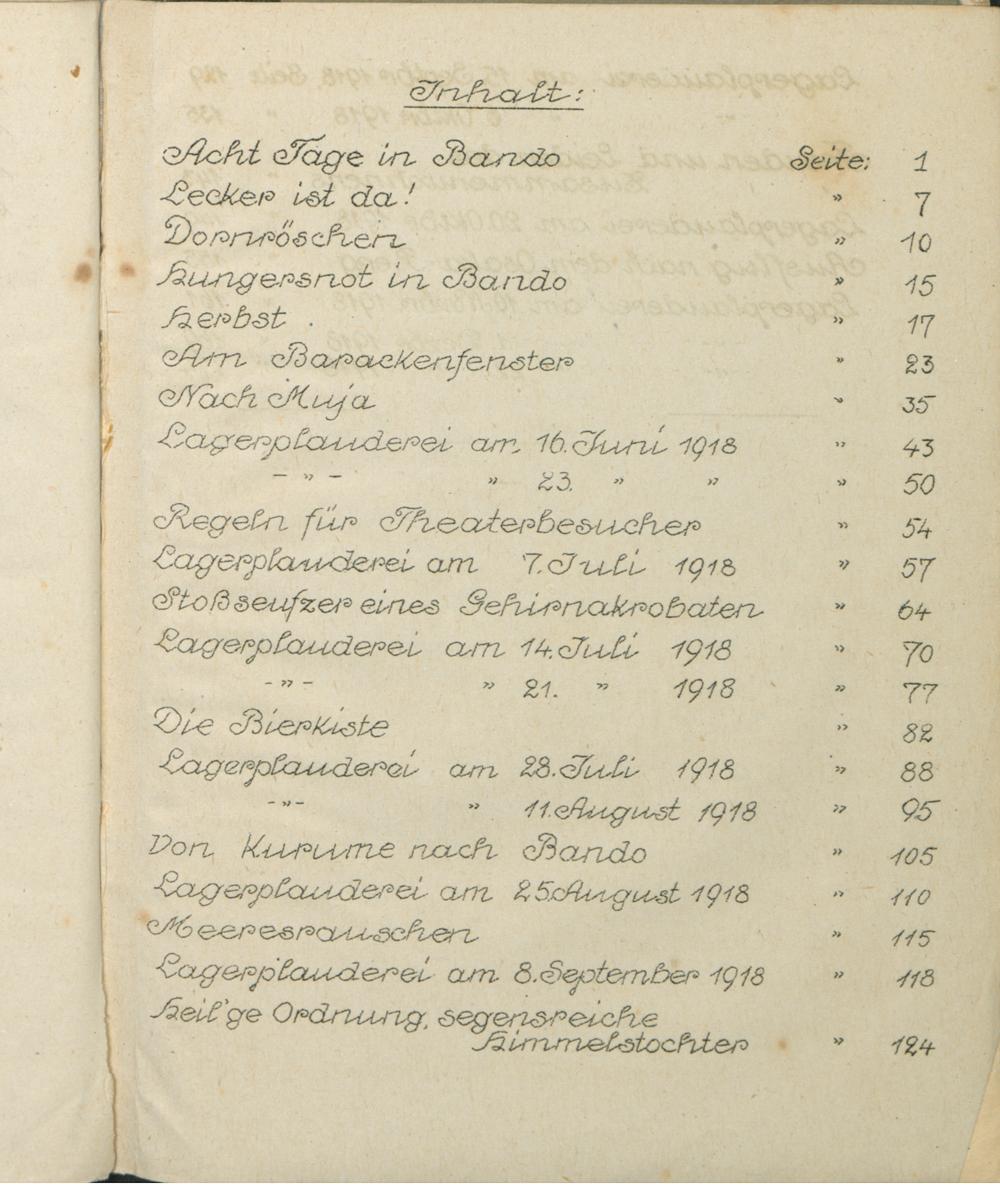 Inhalt:
Acht Tage in Bando Seite: 1
Lecker ist da! " 7
Dornröschen " 10
Hungersnot in Bando " 15
Herbst " 17
Am Barackenfenster " 23
Nach Muja " 35
Lagerplauderei am 16. Juni 1918 " 43
- " - " 23. " " " 50
Regeln für Theaterbesucher " 54
Lagerplauderei am 7. Juli 1918 " 57
Stoßseufzer eines Gehirnakrobaten " 64
Lagerplauderei am 14. Juli 1918 " 70
- " - " 21. " 1918 " 77
Die Bierkiste " 82
Lagerplauderei am 28. Juli 1918 " 88
- " - " 11. August 1918 " 95
Von Kurume nach Bando " 105
Lagerplauderei am 25. August 1918 " 110
Meeresrauschen " 115
Lagerplauderei am 8. September 1918 " 118
Heil'ge Ordnung, segensreiche
Himmelstochter " 124